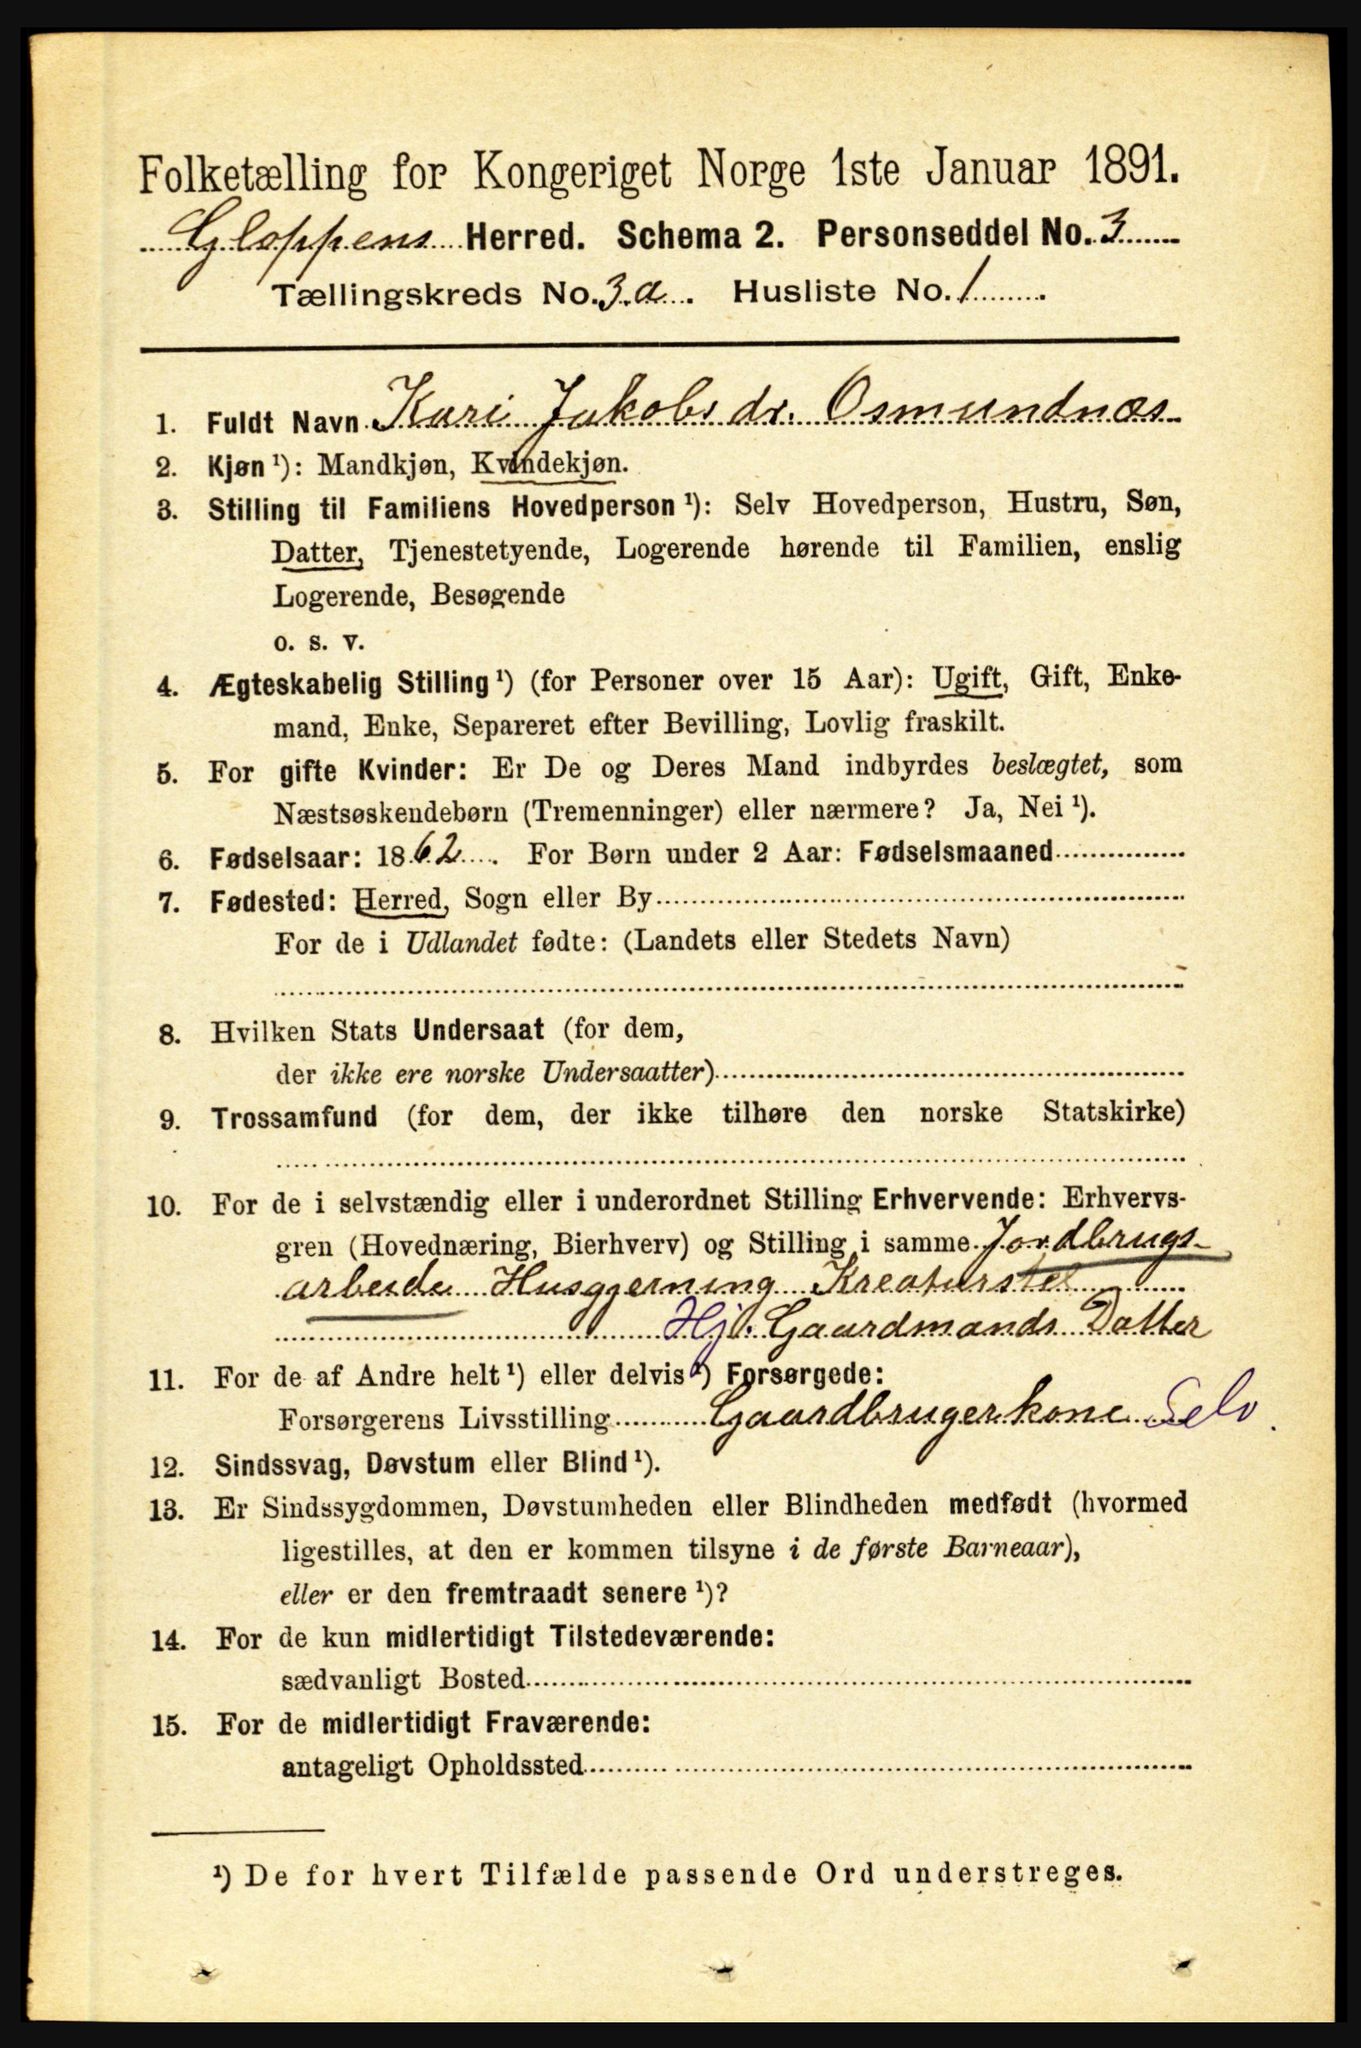 Folketælling for Kongeriget Norge 1ste Januar 1891.
Gloppens Herred. Schema 2. Personseddel No. 3
Tællingskreds No. 3.a. Husliste No. 1
1. Fuldt Navn Kari Jakobsdr. Osmundnæs
2. Kjøn ¹): Mandkjøn, Kvindekjøn.
3. Stilling til Familiens Hovedperson ¹): Selv Hovedperson, Hustru, Søn,
Datter, Tjenestetyende, Logerende hørende til Familien, enslig
Logerende, Besøgende
o. s. v.
4. Ægteskabelig Stilling ¹) (for Personer over 15 Aar): Ugift, Gift, Enke-
mand, Enke, Separeret efter Bevilling, Lovlig fraskilt.
5. For gifte Kvinder: Er De og Deres Mand indbyrdes beslægtet, som
Næstsøskendebørn (Tremenninger) eller nærmere? Ja, Nei ¹).
6. Fødselsaar: 1862. For Børn under 2 Aar: Fødselsmaaned
7. Fødested: Herred, Sogn eller By
For de i Udlandet fødte: (Landets eller Stedets Navn)
8. Hvilken Stats Undersaat (for dem,
der ikke ere norske Undersaatter)
9. Trossamfund (for dem, der ikke tilhøre den norske Statskirke)
10. For de i selvstændig eller i underordnet Stilling Erhvervende: Erhvervs-
gren (Hovednæring, Bierhverv) og Stilling i samme Jordbrugs-
arbeide Husgjerning Kreaturstel
Hj. Gaardmands Datter
11. For de af Andre helt ¹) eller delvis ¹) Forsørgede:
Forsørgerens Livsstilling Gaardbrugerkone Selv
12. Sindssvag, Døvstum eller Blind ¹).
13. Er Sindssygdommen, Døvstumheden eller Blindheden medfødt (hvormed
ligestilles, at den er kommen tilsyne i de første Barneaar),
eller er den fremtraadt senere ¹)?
14. For de kun midlertidigt Tilstedeværende:
sædvanligt Bosted
15. For de midlertidigt Fraværende:
antageligt Opholdssted
¹) De for hvert Tilfælde passende Ord understreges.